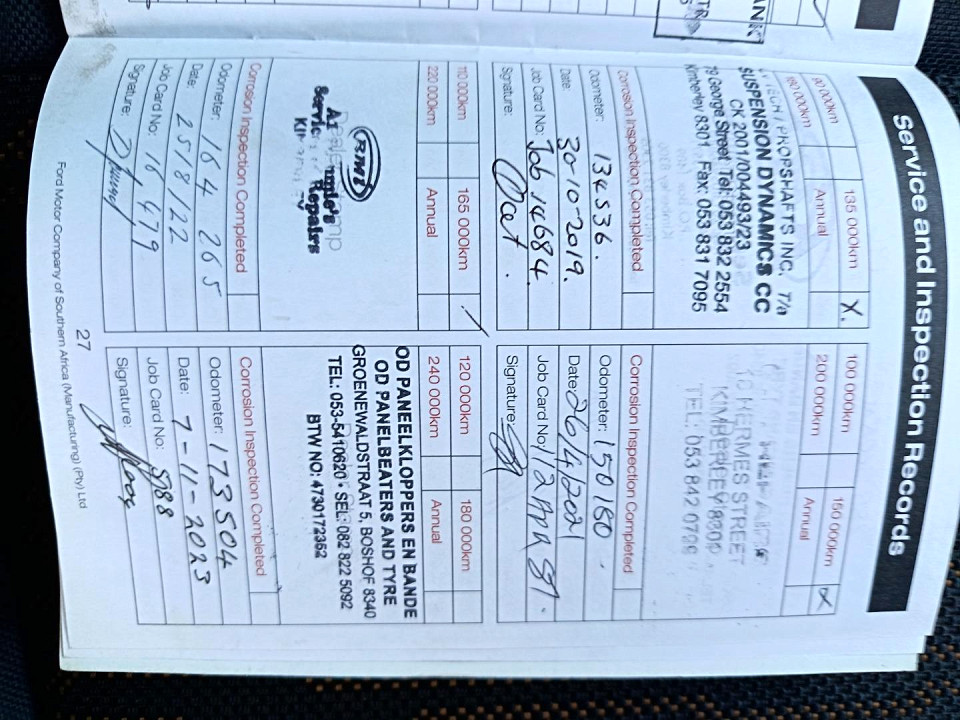 Service and Inspection Records
90 000km
135 000km
X.
180 000km
Annual
PROPSHAFTS INC. T/a
SUSPENSION DYNAMICS CC
CK 2001/004493/23
79 George Street Tel: 053 832 2554
Kimberley 8301 Fax: 053 831 7095
Corrosion Inspection Completed
Odometer: 134536.
Date: 30-10-2019.
Job Card No: Job 14684.
Signature:
100 000km
150 000km
X
200 000km
Annual
HERMES STREET
KIMBERLEY
TEL: 053 842
Corrosion Inspection Completed
Odometer: 150180.
Date: 26/4/2021
Job Card No:
Signature:
110 000km
165 000km
/
220 000km
Annual
RMI
Repairs
Corrosion Inspection Completed
Odometer: 164 265
Date: 25/8/22
Job Card No: 16,479
Signature:
120 000km
180 000km
240 000km
Annual
OD PANEELKLOPPERS EN BANDE
OD PANELBEATERS AND TYRE
GROENEWALDSTRAAT 5, BOSHOF 8340
TEL: 053-5410620 · SEL: 082 822 5092
BTW NO: 4730172362
Corrosion Inspection Completed
Odometer: 173504
Date: 7-11-2023
Job Card No:
Signature:
27
Ford Motor Company of Southern Africa (Manufacturing) (Pty) Ltd